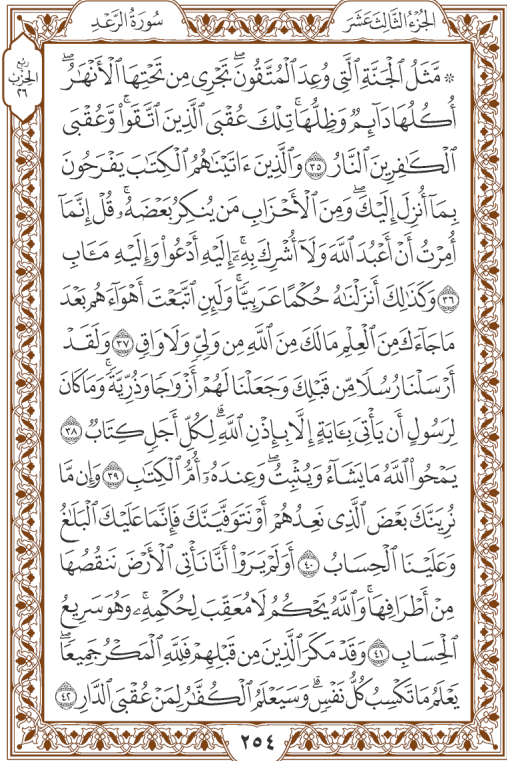 الجُزْءُ الثَّالِثَ عَشَرَ
سُورَةُ الرَّعْدِ
ربع
الحزب
٢٦
۞ مَّثَلُ ٱلۡجَنَّةِ ٱلَّتِي وُعِدَ ٱلۡمُتَّقُونَۖ تَجۡرِي مِن تَحۡتِهَا ٱلۡأَنۡهَٰرُۖ
أُكُلُهَا دَآئِمٞ وَظِلُّهَاۚ تِلۡكَ عُقۡبَى ٱلَّذِينَ ٱتَّقَواْۚ وَّعُقۡبَى
ٱلۡكَٰفِرِينَ ٱلنَّارُ ٣٥ وَٱلَّذِينَ ءَاتَيۡنَٰهُمُ ٱلۡكِتَٰبَ يَفۡرَحُونَ
بِمَآ أُنزِلَ إِلَيۡكَۖ وَمِنَ ٱلۡأَحۡزَابِ مَن يُنكِرُ بَعۡضَهُۥۚ قُلۡ إِنَّمَآ
أُمِرۡتُ أَنۡ أَعۡبُدَ ٱللَّهَ وَلَآ أُشۡرِكَ بِهِۦٓۚ إِلَيۡهِ أَدۡعُواْ وَإِلَيۡهِ مَـَٔابِ
٣٦ وَكَذَٰلِكَ أَنزَلۡنَٰهُ حُكۡمًا عَرَبِيّٗاۚ وَلَئِنِ ٱتَّبَعۡتَ أَهۡوَآءَهُم بَعۡدَ
مَا جَآءَكَ مِنَ ٱلۡعِلۡمِ مَا لَكَ مِنَ ٱللَّهِ مِن وَلِيّٖ وَلَا وَاقٖ ٣٧ وَلَقَدۡ
أَرۡسَلۡنَا رُسُلٗا مِّن قَبۡلِكَ وَجَعَلۡنَا لَهُمۡ أَزۡوَٰجٗا وَذُرِّيَّةٗۚ وَمَا كَانَ
لِرَسُولٍ أَن يَأۡتِيَ بِـَٔايَةٍ إِلَّا بِإِذۡنِ ٱللَّهِۗ لِكُلِّ أَجَلٖ كِتَابٞ ٣٨
يَمۡحُواْ ٱللَّهُ مَا يَشَآءُ وَيُثۡبِتُۖ وَعِندَهُۥٓ أُمُّ ٱلۡكِتَٰبِ ٣٩ وَإِن مَّا
نُرِيَنَّكَ بَعۡضَ ٱلَّذِي نَعِدُهُمۡ أَوۡ نَتَوَفَّيَنَّكَ فَإِنَّمَا عَلَيۡكَ ٱلۡبَلَٰغُ
وَعَلَيۡنَا ٱلۡحِسَابُ ٤٠ أَوَلَمۡ يَرَوۡاْ أَنَّا نَأۡتِي ٱلۡأَرۡضَ نَنقُصُهَا
مِنۡ أَطۡرَافِهَاۚ وَٱللَّهُ يَحۡكُمُ لَا مُعَقِّبَ لِحُكۡمِهِۦۚ وَهُوَ سَرِيعُ
ٱلۡحِسَابِ ٤١ وَقَدۡ مَكَرَ ٱلَّذِينَ مِن قَبۡلِهِمۡ فَلِلَّهِ ٱلۡمَكۡرُ جَمِيعٗاۖ
يَعۡلَمُ مَا تَكۡسِبُ كُلُّ نَفۡسٖۗ وَسَيَعۡلَمُ ٱلۡكُفَّٰرُ لِمَنۡ عُقۡبَى ٱلدَّارِ ٤٢
٢٥٤